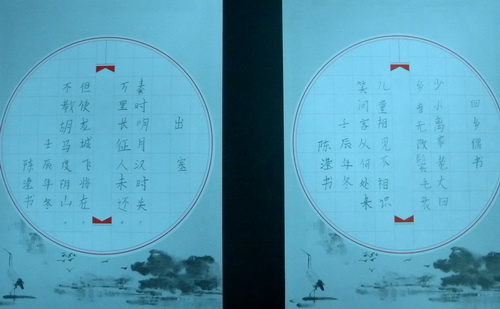 出塞
秦时明月汉时关
万里长征人未还。
但使龙城飞将在
不教胡马度阴山。
壬辰年冬
陈滢书
回乡偶书
少小离家老大回
乡音无改鬓毛衰
儿童相见不相识
笑问客从何处来
壬辰年冬
陈滢书